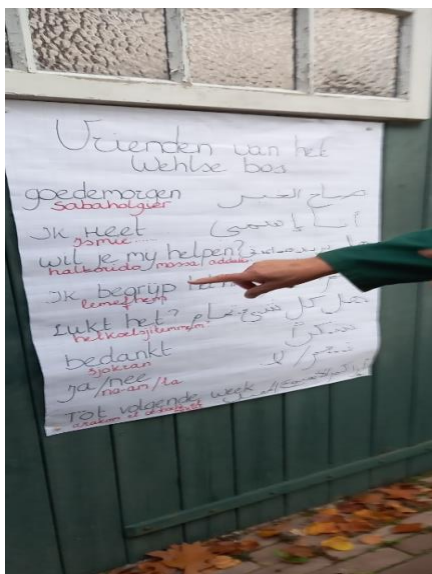 Vrienden van het
Wehlse bos
goedemorgen صباح الخير
sabaholgier
Ik Heet أنا إسمي
ismie
wil je my helpen?
halkouida/massa
Ik begrijp
lemefhem
Lukt het? هل كل شيئ تمام
helkoelsjitemmem
bedankt شكراً
sjokran
Ja/nee نعم / لا
na-am/la
Tot volgende week